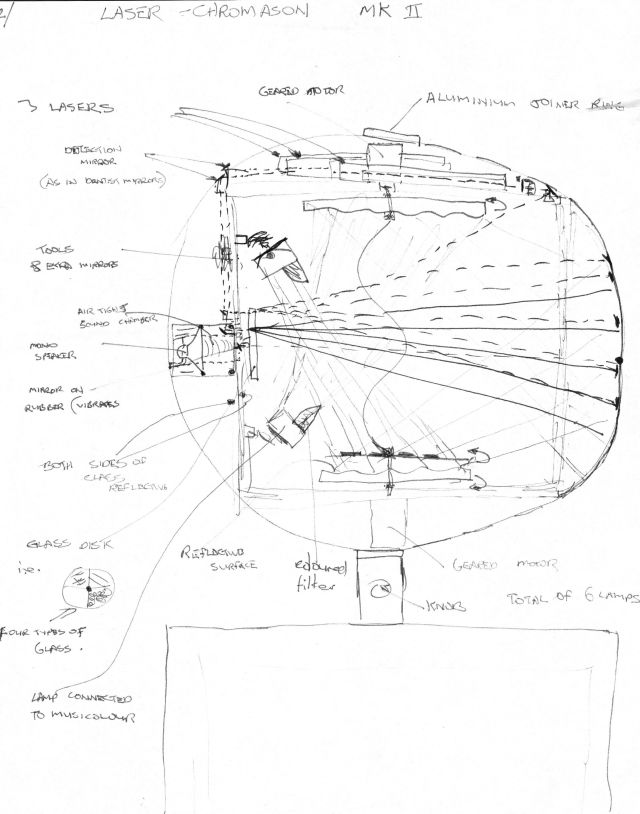 2/ LASER - CHROMASON MK II
GEARED MOTOR
ALUMINIUM JOINER RING
3 LASERS
DEFLECTION
MIRROR
(AS IN DENTIST MIRRORS)
TOOLS
& EXTRA MIRRORS
AIR TIGHT
SOUND CHAMBER
MONO
SPEAKER
MIRROR ON
RUBBER (VIBRATES
BOTH SIDES OF
GLASS
REFLECTIVE
GLASS DISK
i.e.
REFLECTIVE
SURFACE
coloured
filter
GEARED MOTOR
KNOB
TOTAL OF 6 LAMPS
FOUR TYPES OF
GLASS.
LAMP CONNECTED
TO MUSICOLOUR